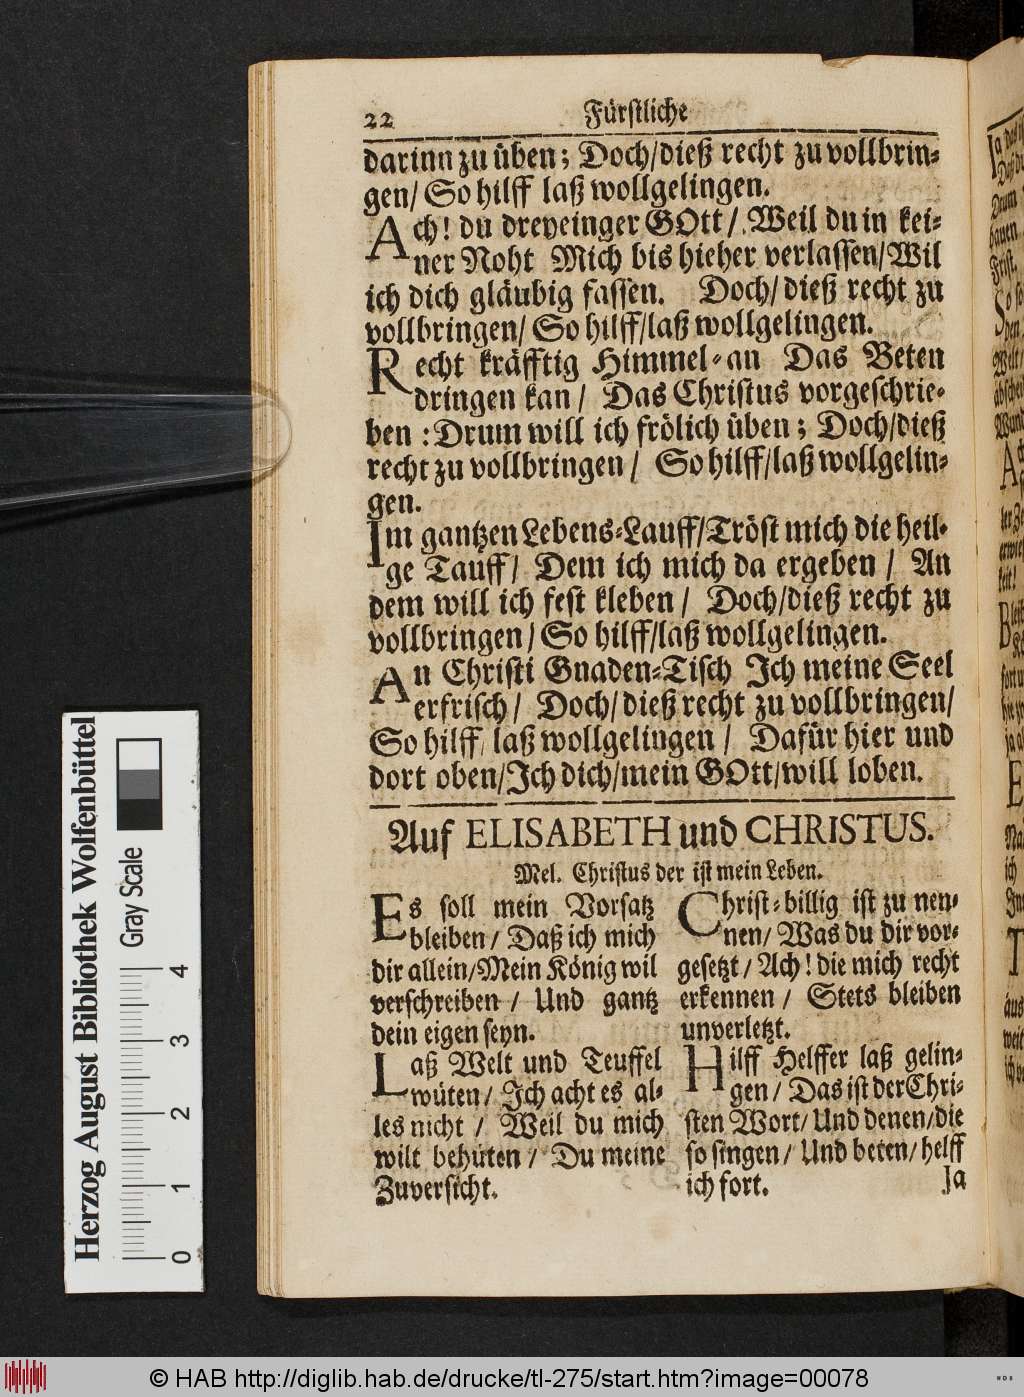 22 Fürstliche
darinn zu üben; Doch/dieß recht zu vollbrin-
gen/ So hilff laß wollgelingen.
Ach! du dreyeinger GOtt/ Weil du in kei-
ner Noht Mich bis hieher verlassen/Wil
ich dich gläubig fassen. Doch/dieß recht zu
vollbringen/ So hilff/laß wollgelingen.
Recht kräfftig Himmel-an Das Beten
dringen kan/ Das Christus vorgeschrie-
ben: Drum will ich frölich üben; Doch/dieß
recht zu vollbringen/ So hilff/laß wollgelin-
gen.
Im gantzen Lebens-Lauff/Tröst mich die heil-
ge Tauff/ Dem ich mich da ergeben/ An
dem will ich fest kleben/ Doch/dieß recht zu
vollbringen/ So hilff/laß wollgelingen.
An Christi Gnaden-Tisch Ich meine Seel
erfrisch/ Doch/dieß recht zu vollbringen/
So hilff/ laß wollgelingen/ Dafür hier und
dort oben/Ich dich/mein GOtt/will loben.
Auf ELISABETH und CHRISTUS.
Mel. Christus der ist mein Leben.
Es soll mein Vorsatz
bleiben/ Daß ich mich
dir allein/Mein König wil
verschreiben/ Und gantz
dein eigen seyn.
Laß Welt und Teuffel
wüten/ Ich acht es al-
les nicht/ Weil du mich
wilt behüten/ Du meine
Zuversicht.
Christ-billig ist zu nen-
nen/ Was du dir vor-
gesetzt/ Ach! die mich recht
erkennen/ Stets bleiben
unverletzt.
Hilff Helffer laß gelin-
gen/ Das ist der Chri-
sten Wort/ Und denen/die
so singen/ Und beten/ helff
ich fort. Ja
Herzog August Bibliothek Wolfenbüttel
Gray Scale
0 1 2 3 4
© HAB http://diglib.hab.de/drucke/tl-275/start.htm?image=00078